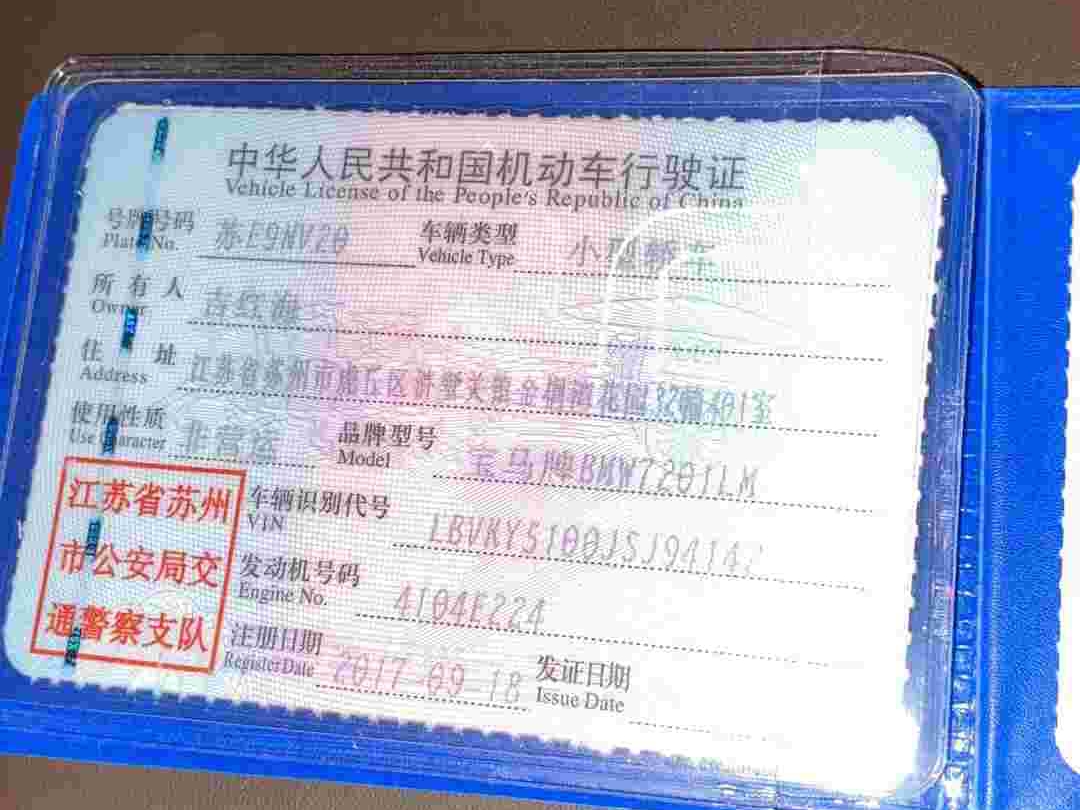 中华人民共和国机动车行驶证
Vehicle License of the People's Republic of China
号牌号码 苏E9MV20 车辆类型 小型轿车
Plate No. Vehicle Type
所有人 吉红海
Owner
住址 江苏省苏州市虎丘区浒墅关镇金榈湾花园32幢401室
Address
使用性质 非营运 品牌型号 宝马牌BMW7201LM
Use Character Model
江苏省苏州 车辆识别代号 LBVKY5100JSJ94147
VIN
市公安局交 发动机号码 4104E224
Engine No.
通警察支队 注册日期 2017-09-18 发证日期
Register Date Issue Date